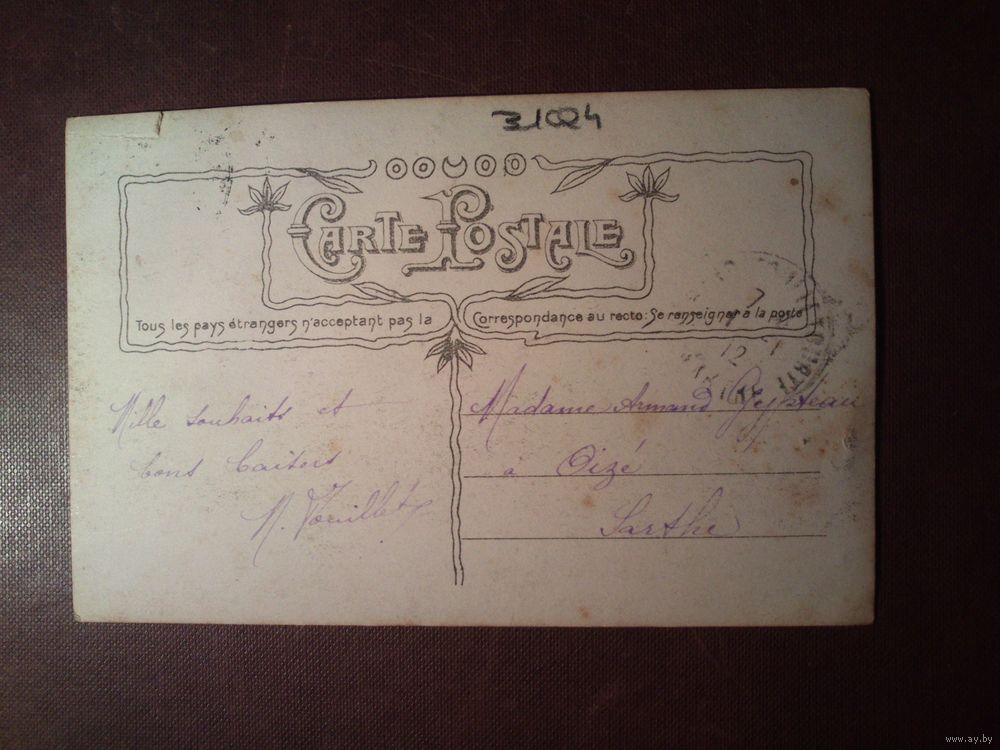 31024
CARTE POSTALE
Tous les pays étrangers n'acceptent pas la Correspondance au recto: Se renseigner à la poste
Mille souhaits et
bons baisers
Madame Armand
à Oizé
Sarthe
www.ay.by